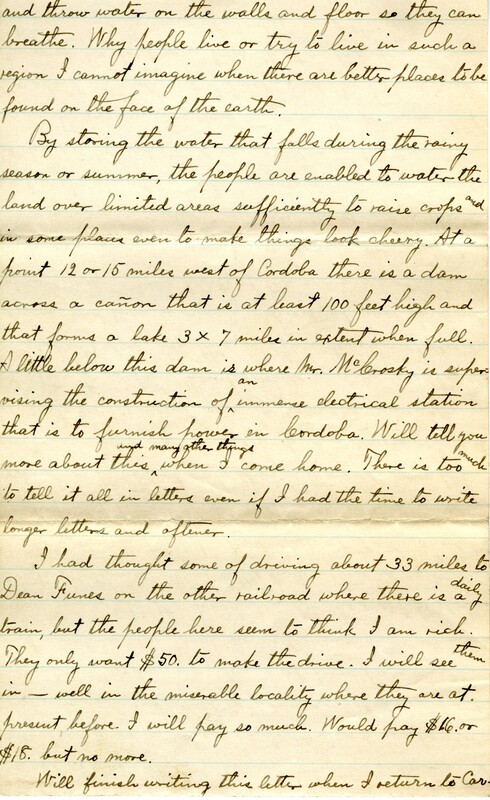 and throw water on the walls and floor so they can
breathe. Why people live or try to live in such a
region I cannot imagine when there are better places to be
found on the face of the earth.
By storing the water that falls during the rainy
season or summer, the people are enabled to water the
land over limited areas sufficiently to raise crops and
in some places even to make things look cheery. At a
point 12 or 15 miles west of Cordoba there is a dam
across a cañon that is at least 100 feet high and
that forms a lake 3 x 7 miles in extent when full.
A little below this dam is where Mr. McCrosky is super-
vising the construction of an immense electrical station
that is to furnish power in Cordoba. Will tell you
more about this and many other things when I come home. There is too much
to tell it all in letters even if I had the time to write
longer letters and oftener.
I had thought some of driving about 33 miles to
Dean Funes on the other railroad where there is a daily
train, but the people here seem to think I am rich.
They only want $50. to make the drive. I will see them
in — well in the miserable locality where they are at
present before I will pay so much. Would pay $16. or
$18. but no more.
Will finish writing this letter when I return to Cor-